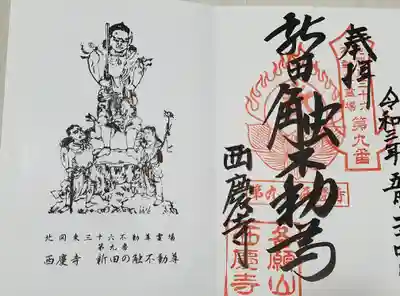 奉拝
令和三年
新田触不動尊
西慶寺
第九番
名願山
西慶寺
北関東三十六不動尊霊場
第九番
西慶寺 新田の触不動尊